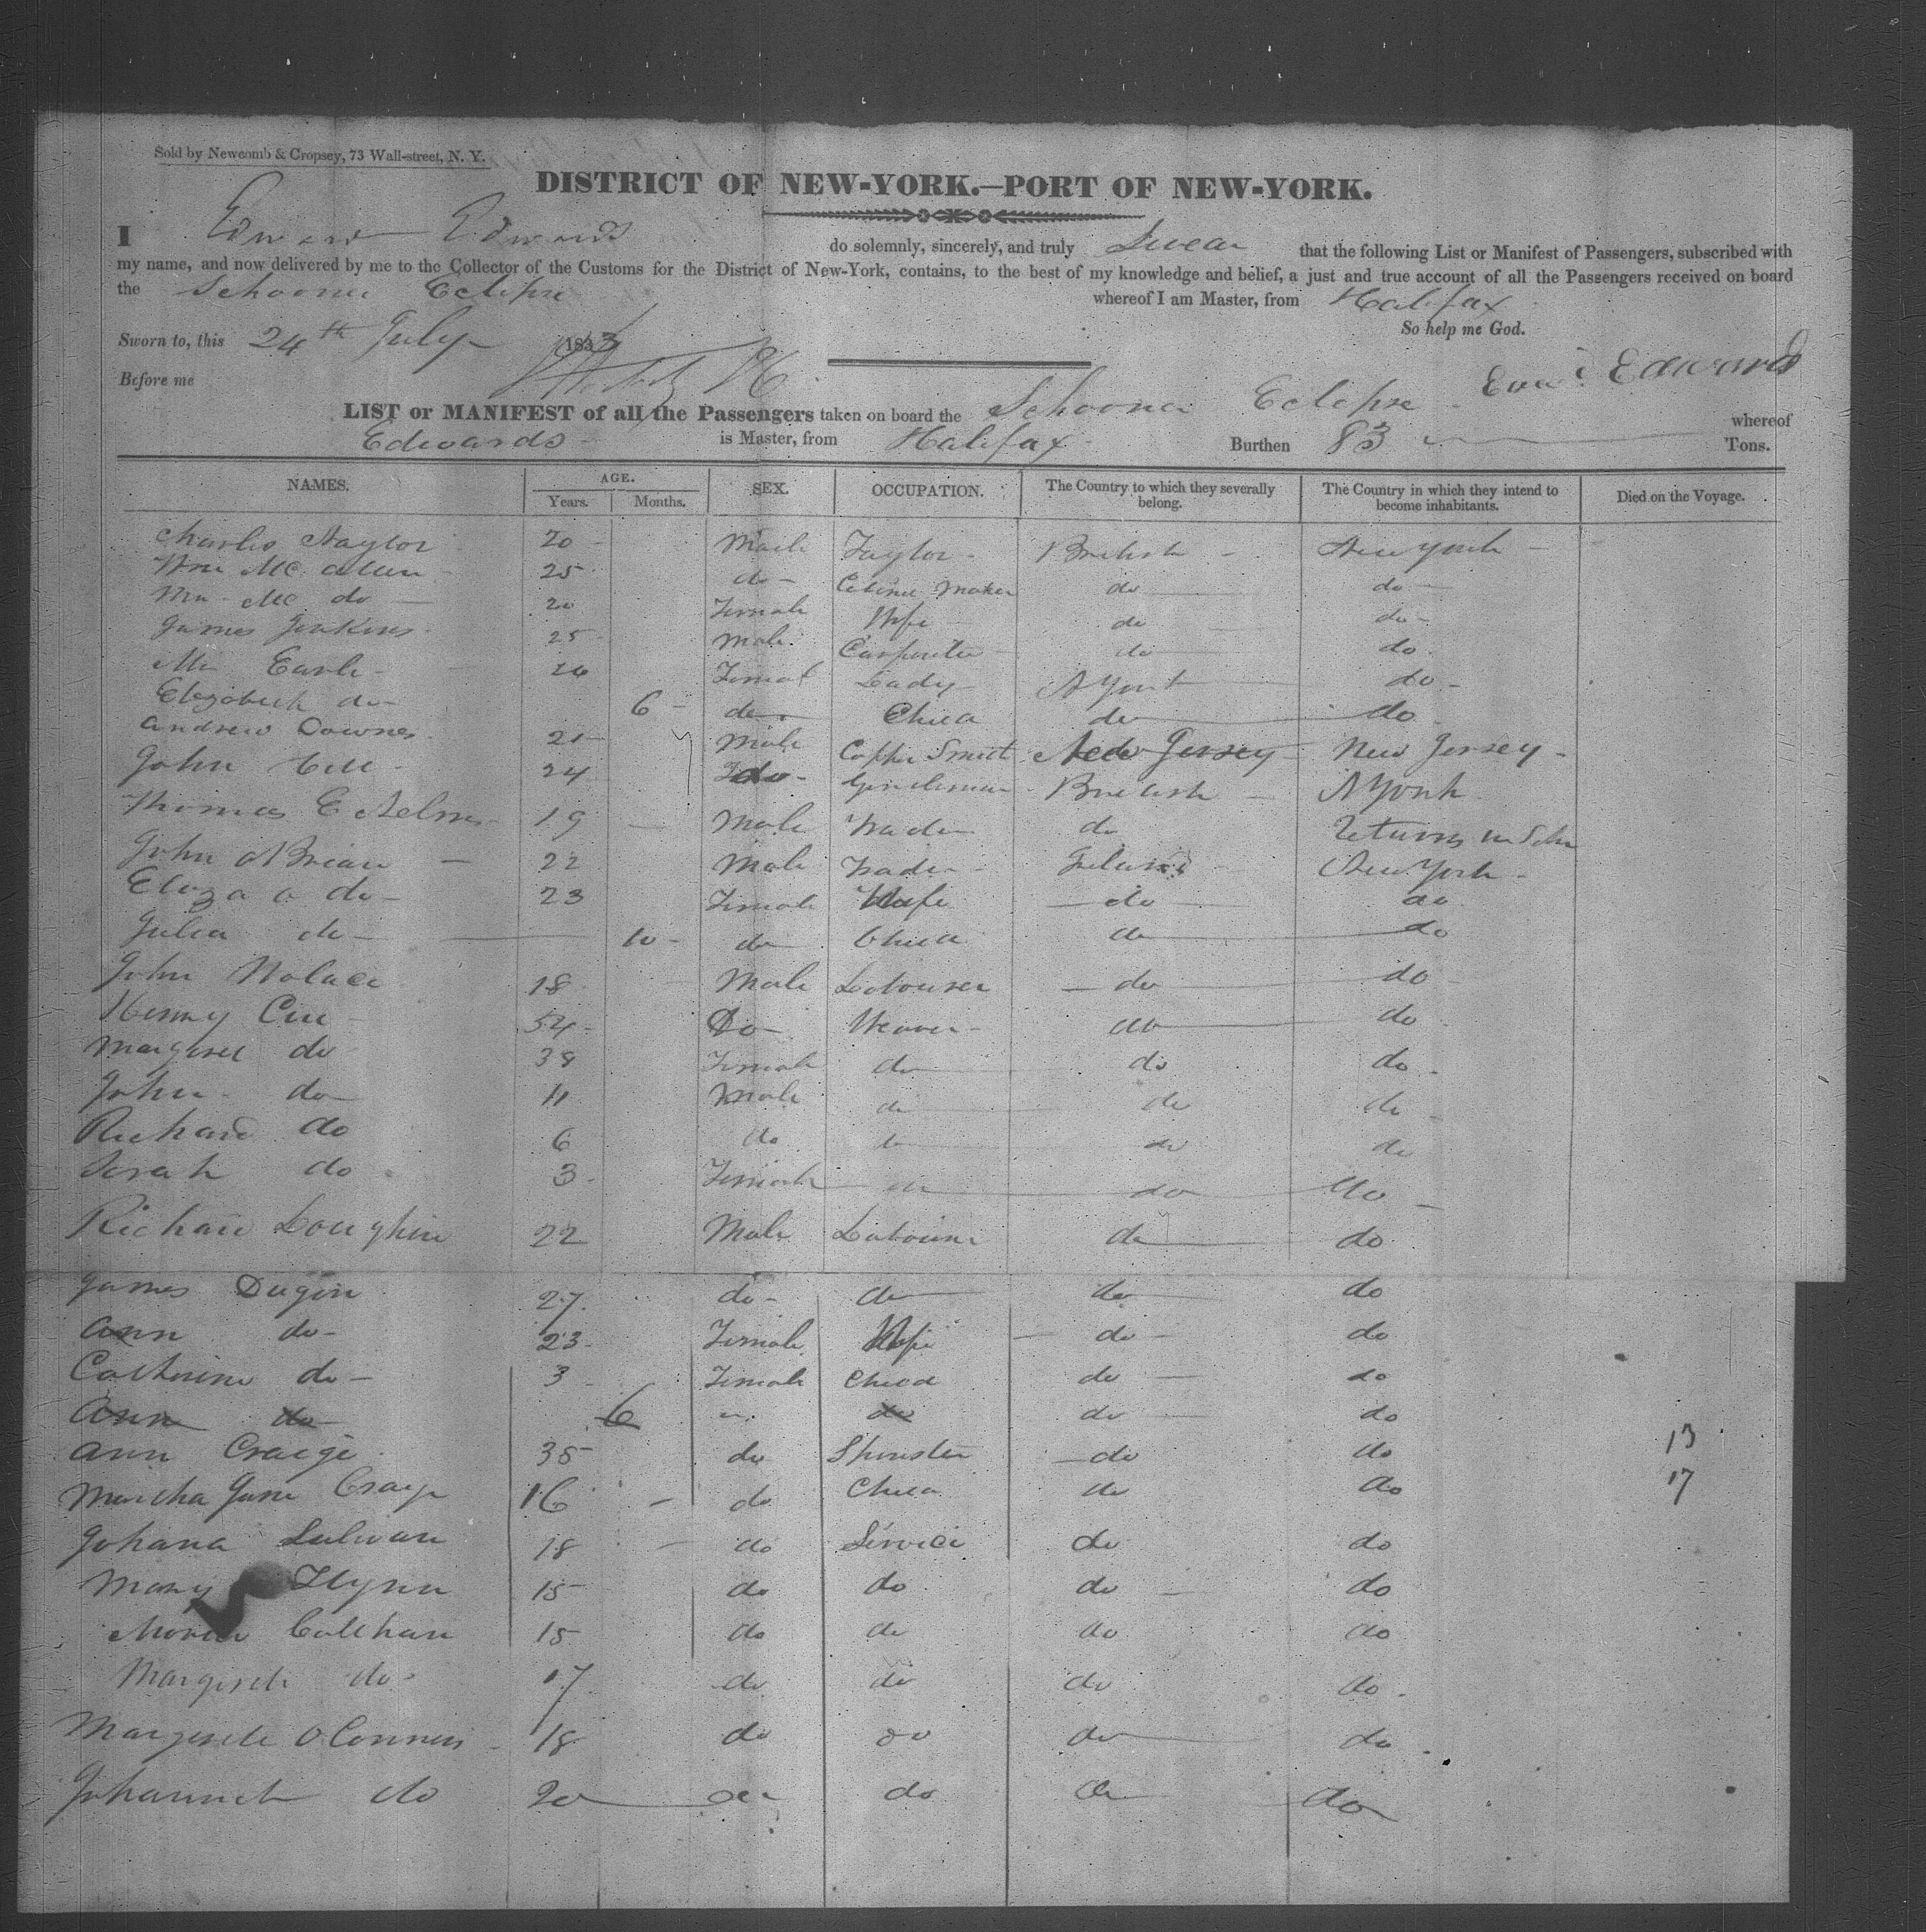 Sold by Newcomb & Cropsey, 73 Wall-street, N. Y.
DISTRICT OF NEW-YORK.—PORT OF NEW-YORK.
I Edward Edwards do solemnly, sincerely, and truly Swear that the following List or Manifest of Passengers, subscribed with
my name, and now delivered by me to the Collector of the Customs for the District of New-York, contains, to the best of my knowledge and belief, a just and true account of all the Passengers received on board
the Schooner Eclipse whereof I am Master, from Halifax
So help me God.
Sworn to, this 24th July 1833
Before me
Edwd Edwards
LIST or MANIFEST of all the Passengers taken on board the Schooner Eclipse whereof
Edwards is Master, from Halifax Burthen 83 Tons.
NAMES. AGE. Years. Months. SEX. OCCUPATION. The Country to which they severally belong. The Country in which they intend to become inhabitants. Died on the Voyage.
Charles Naylor 20 Male Taylor British New York
Wm Mc allen 25 do Cabinet Maker do do
Mrs Mc do 20 Female Wife do do
James Jenkins 25 Male Carpenter do do
Mrs Earle 24 Female Lady N York do
Elizabeth do 6 do Child do do
Andrew Downes 21 Male Copper Smith New Jersey New Jersey
John 24 do Gentleman British N York
Thomas E 19 Male Trader do returns in Schr
John O Brian 22 Male Trader Ireland New York
Eliza O do 23 Female Wife do do
Julia do 10 do Child do do
John Wolace 18 Male Labourer do do
Henry 54 Do Weaver do do
Margaret do 38 Female do do do
John do 11 Male do do do
Richard do 6 do do do do
Sarah do 3 Female do do do
Richard Loughlin 22 Male Labourer do do
James Dugin 27 do do do do
Ann do 23 Female Wife do do
Catherine do 3 Female Child do do
Ann do 6 do do do
Ann Craige 35 do Spinster do do 13
Martha Jane Craige 16 do Child do do 17
Johana Sulivan 18 do Service do do
Mary Flynn 15 do do do do
Maria Calehan 15 do do do do
Margerete do 17 do do do do
Margerete O Conners 18 do do do do
Johannah do 20 do do do do